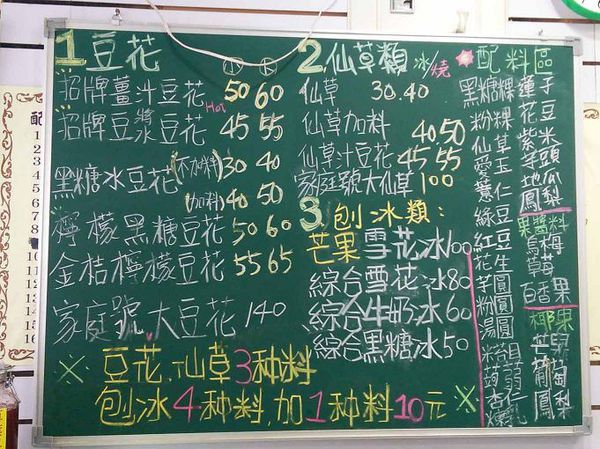 1豆花
小 大
招牌薑汁豆花 Hot 50 60
招牌豆漿豆花 45 55
黑糖冰豆花(不加料) 30 40
(加料) 40 50
檸檬黑糖豆花 50 60
金桔檸檬豆花 55 65
家庭號大豆花 140
2仙草類 冰/燒
仙草 30.40
仙草加料 40 50
仙草汁豆花 45 55
家庭號大仙草 100
3.刨冰類:
芒果雪花冰100
綜合雪花冰80
綜合牛奶冰60
綜合黑糖冰50
※豆花.仙草3种料
刨冰4种料,加1种料10元※
配料區
黑糖粿
粉粿
仙草
愛玉
薏仁
綠豆
紅豆
花生
芋圓
粉圓
湯圓
蒟蒻
杏仁
蓮子
花豆
紫米
芋頭
地瓜
鳳梨
果醬料
烏梅
草莓
百香果
椰果
芒果
葡萄
鳳梨
配
1
2
3
4
5
6
7
8
9
16